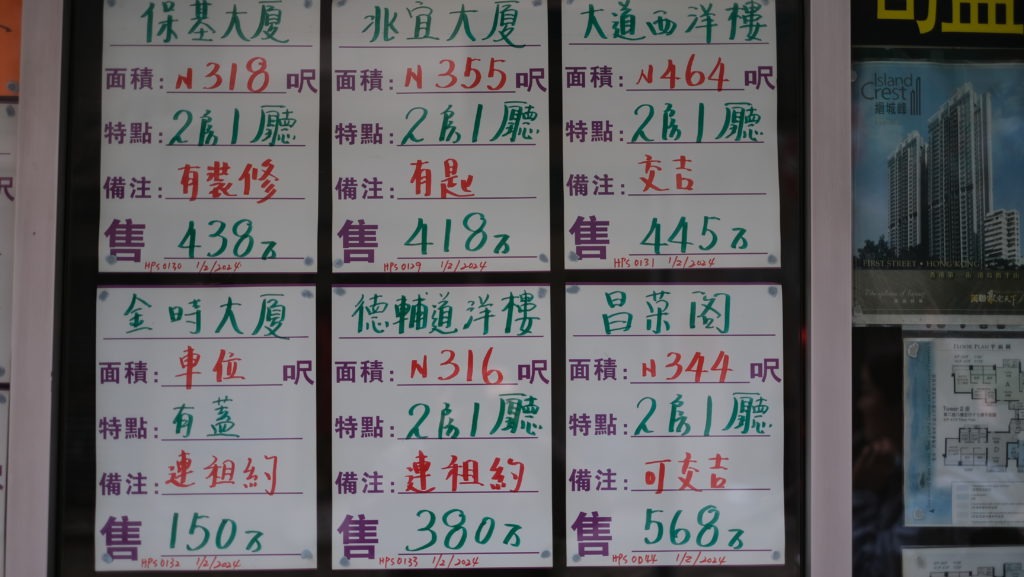 保基大廈
面積: N318 呎
特點: 2房1廳
備注: 有裝修
售 438万
HPS0130 1/2/2024
兆宜大廈
面積: N355 呎
特點: 2房1廳
備注: 有匙
售 418万
HPS0129 1/2/2024
大道西洋樓
面積: N464 呎
特點: 2房1廳
備注: 交吉
售 445万
HPS0131 1/2/2024
金時大廈
面積: 車位 呎
特點: 有蓋
備注: 連租約
售 150万
HPS0132 1/2/2024
德輔道洋樓
面積: N316 呎
特點: 2房1廳
備注: 連租約
售 380万
HPS0133 1/2/2024
昌菜阁
面積: N344 呎
特點: 2房1廳
備注: 可交吉
售 568万
HPS0044 1/2/2024
呎
Island
Crest
縉城峰
FIRST STREET • HONG KONG
FLOOR PLAN 平面圖
Tower 2 座